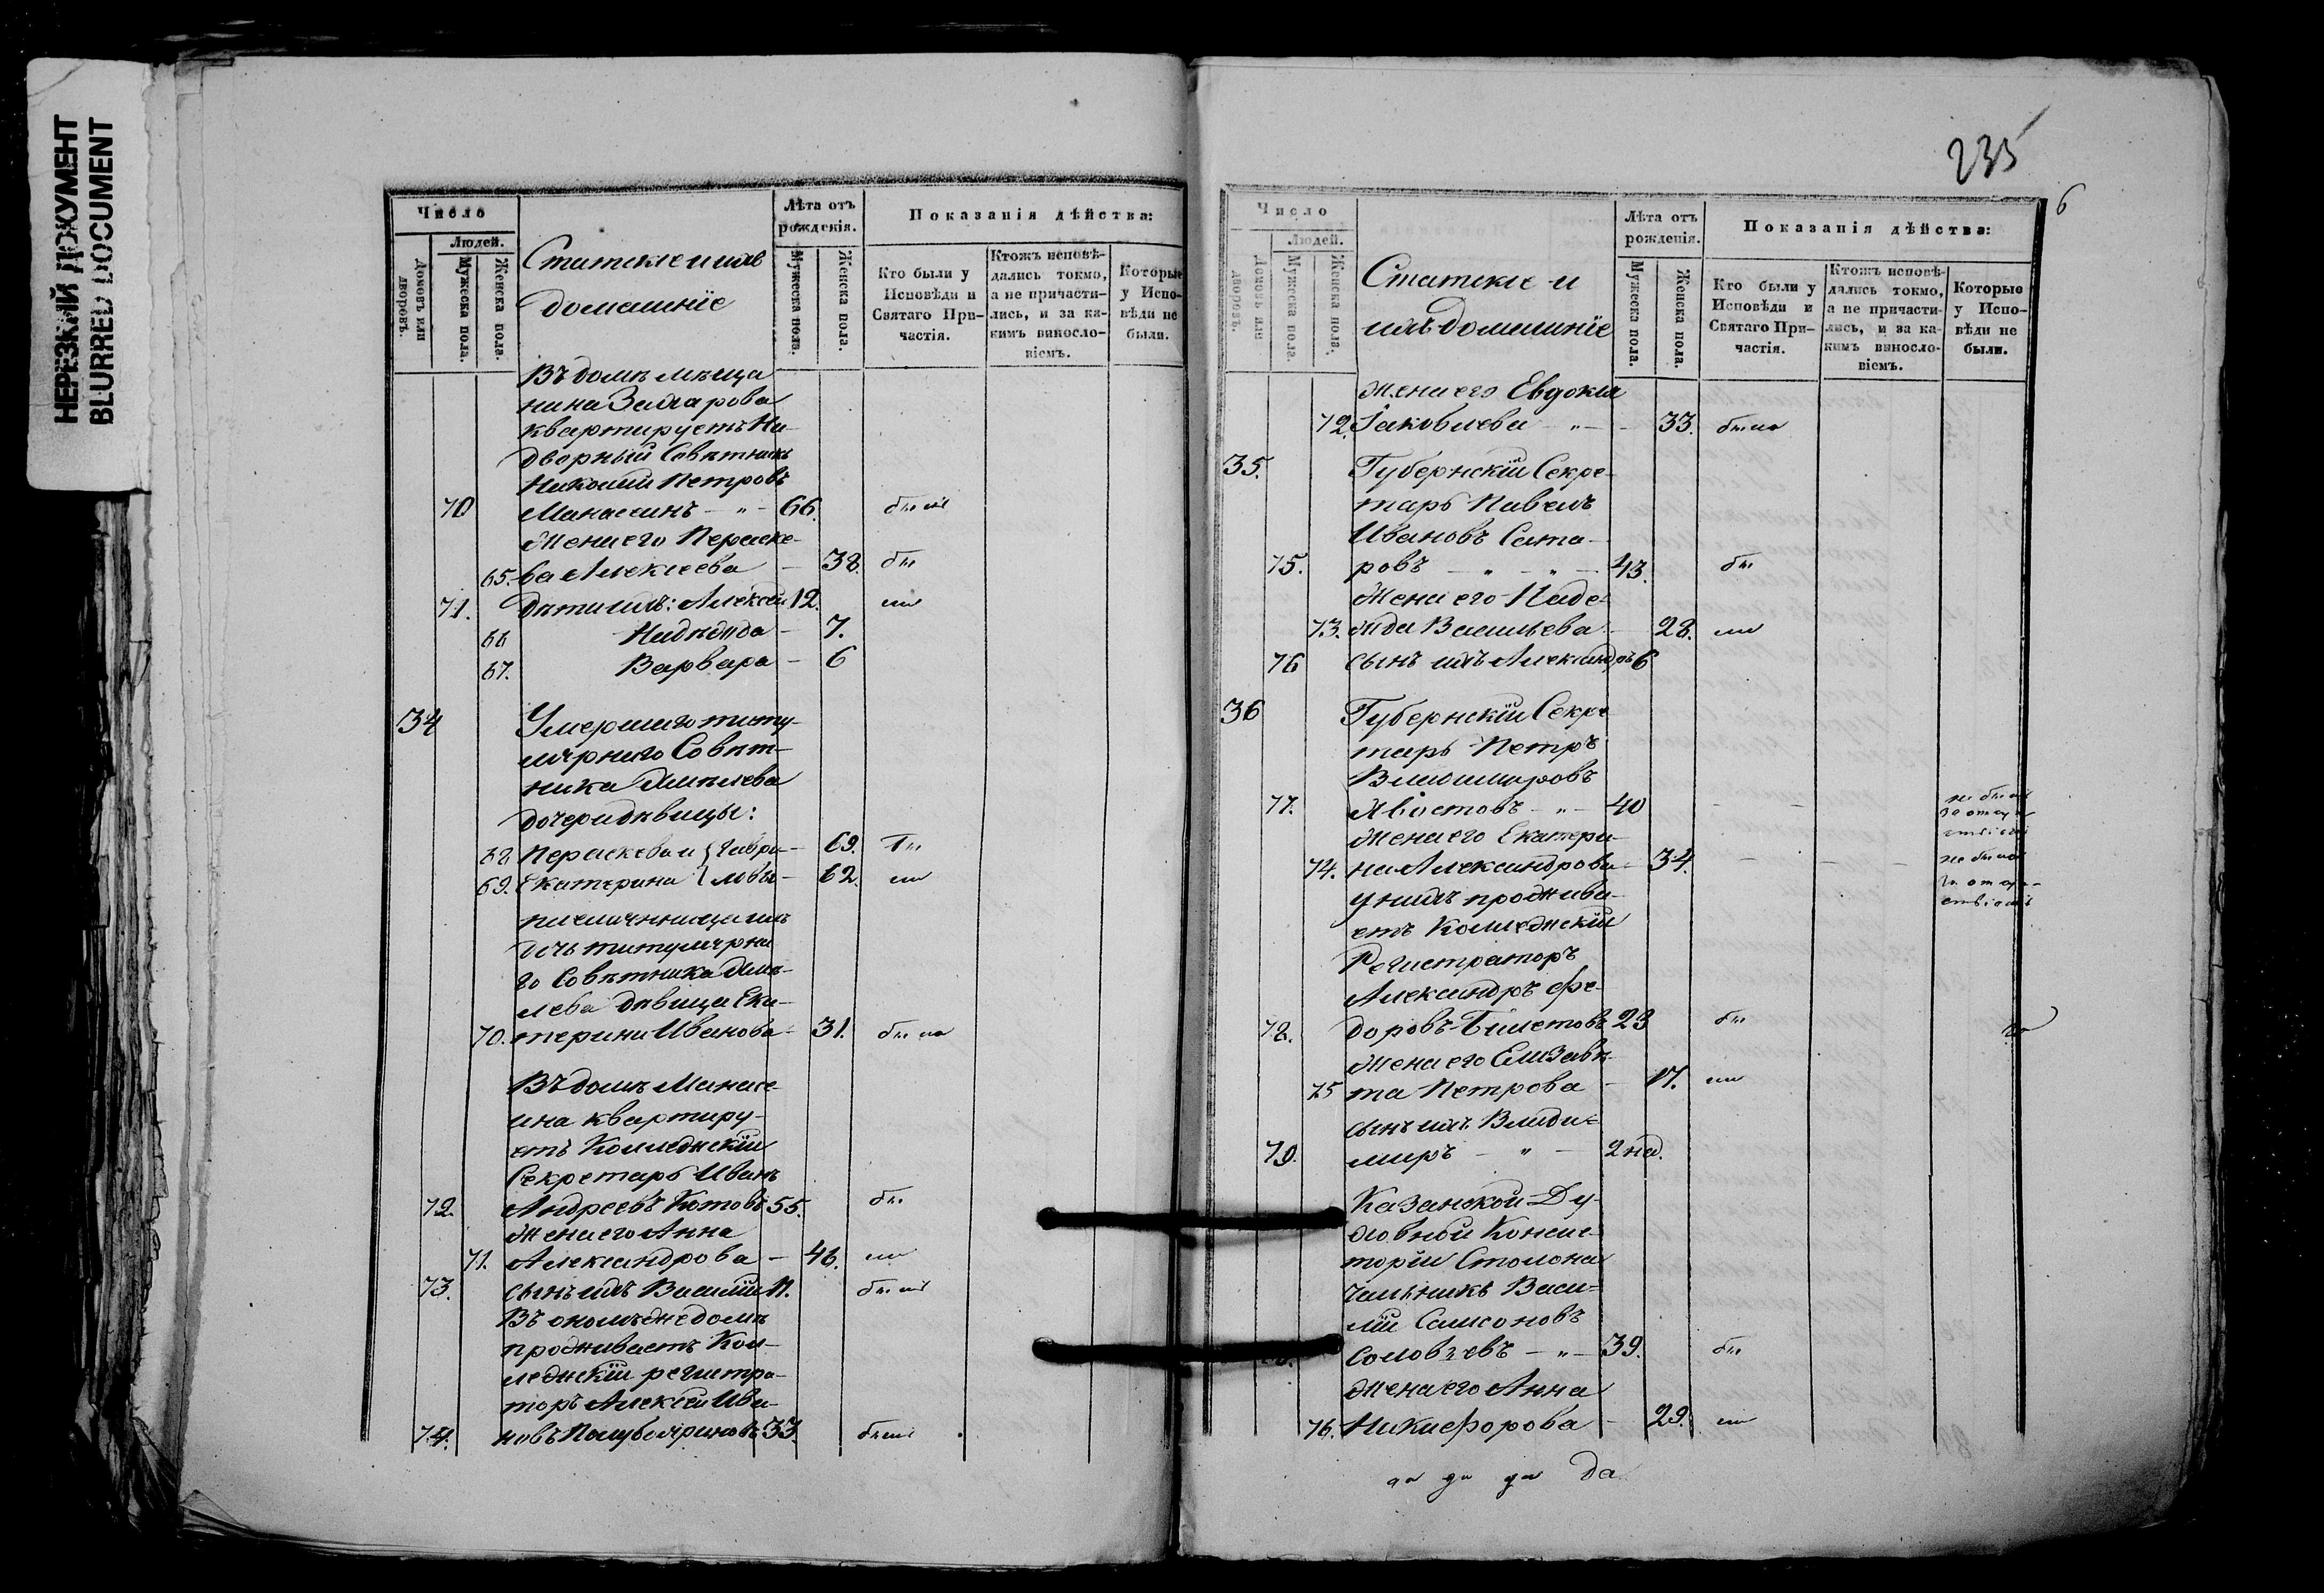 НЕРЕЗКИЙ ДОКУМЕНТ
BLURRED DOCUMENT
Число
Людей.
Домовъ или дворовъ.
Мужеска пола.
Женска пола.
Статские и ихъ
домашнїе
Лѣта отъ
рожденія.
Мужеска пола.
Женска пола.
Показанія дѣйства:
Кто были у
Исповѣди и
Святаго При-
частія.
Ктожъ исповѣ-
дались токмо,
а не причасти-
лись, и за ка-
кимъ виносло-
віемъ.
Которые
у Испо-
вѣди не
были.
Въ домѣ мѣща
нина
квартируетъ На
дворный Совѣтникъ
Николай Петровъ
70 Манассинъ - " - 66. былъ
Жена его Параске-
65. ва Алексеева - 38. бы
71. дѣти ихъ: Алексей 12. ли
66 Надежда - 7.
67. Варвара - 6
34 Умершаго титу-
лярнаго Совѣт-
ника
дочери дѣвицы:
68. Параскева и Гаври- 69. бы
69. Екатерина ловы - 62. ли
племянница ихъ
дочь титулярна
го Совѣтника
лева дѣвица Ека-
70. терина Иванова - 31. была
Въ домѣ Манасс-
ина квартиру-
етъ Коллежскїй
Секретарь Иванъ
72. Андреевъ Котовъ 55. бы
Жена его Анна
71. Александрова - 46. ли
73. сынъ ихъ Василїй 11. былъ
Въ ономъ же домѣ
проживаетъ Кол-
лежскїй регистра-
торъ Алексей Ива-
74. новъ Полубояриновъ 33. былъ
235
6
Число
Людей.
Домовъ или дворовъ.
Мужеска пола.
Женска пола.
Статские и
ихъ домашнїе
Лѣта отъ
рожденія.
Мужеска пола.
Женска пола.
Показанія дѣйства:
Кто были у
Исповѣди и
Святаго При-
частія.
Ктожъ исповѣ-
дались токмо,
а не причасти-
лись, и за ка-
кимъ виносло-
віемъ.
Которые
у Испо-
вѣди не
были.
Жена его Евдокия
72. Іаковлева " - 33. была
35. Губернскїй Секре-
тарь Павелъ
Ивановъ Сата-
75. ровъ - " - " - 43. бы
Жена его Наде-
73. жда Васильева - 28. ли
76 сынъ ихъ Александръ 6
36 Губернскїй Секре
тарь Петръ
Владимировъ
77. Хвостовъ - " - 40 не былъ
за отсут
ствіемъ
Жена его Екатери-
74. на Александрова 34. не была
за отсут-
ствіемъ
у нихъ прожива-
етъ Коллежскїй
Регистраторъ
Александръ Фе-
78. доровъ Билетовъ 23 бы
Жена его Елизаве-
75 та Петрова - 17. ли
сынъ ихъ Влади-
79. миръ - " - 2 нед.
Казанской Ду-
ховной Консис-
торїи Столона
чальникъ Васи-
лїй Самсоновъ
Соловьевъ - " - 39. бы
Жена его Анна
76. Никифорова - 29. ли
да